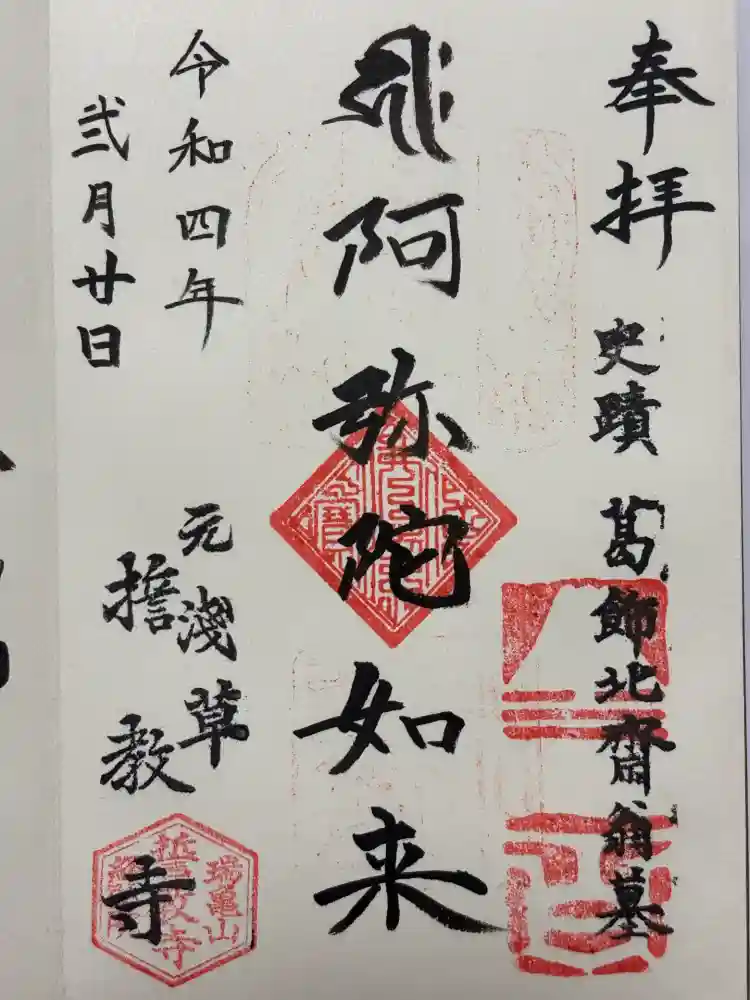 奉拝
史蹟 葛飾北齋翁墓
阿弥陀如来
令和四年
弐月廿日
元淺草
擔教寺
瑞亀山